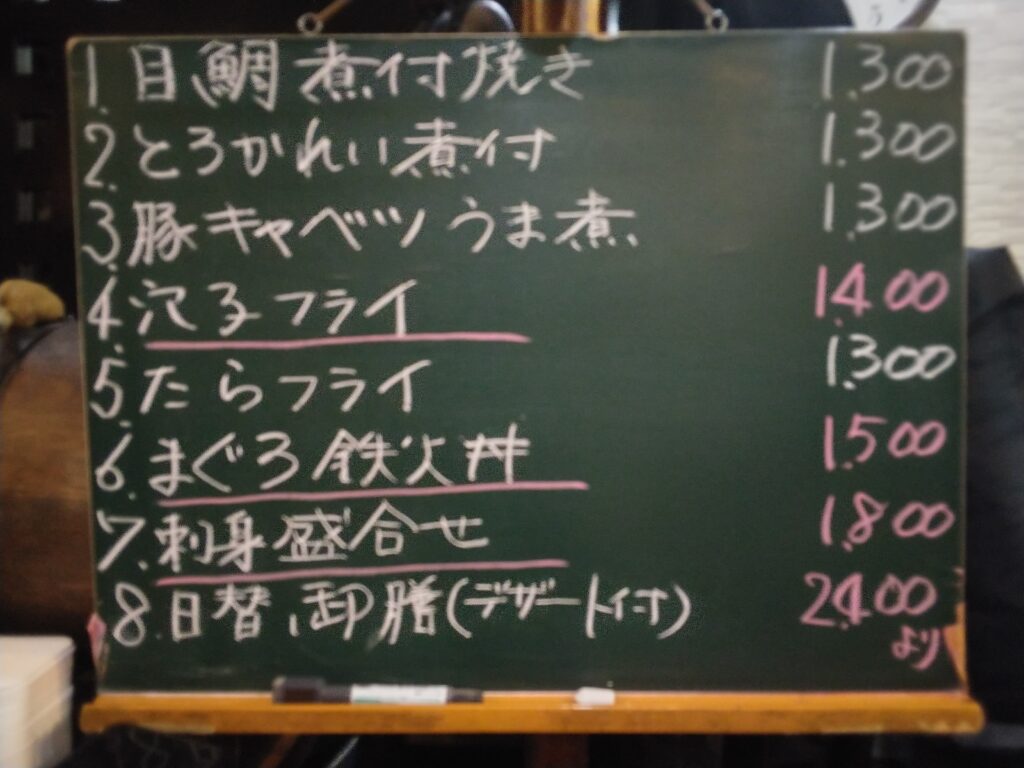 1. 目鯛 煮付 焼き 1.300
2. とろかれい煮付 1.300
3. 豚キャベツうま煮 1.300
4. 穴子フライ 1.400
5. たらフライ 1.300
6. まぐろ鉄火丼 1.500
7. 刺身盛合せ 1.800
8. 日替り御膳(デザート付) 2.400
より